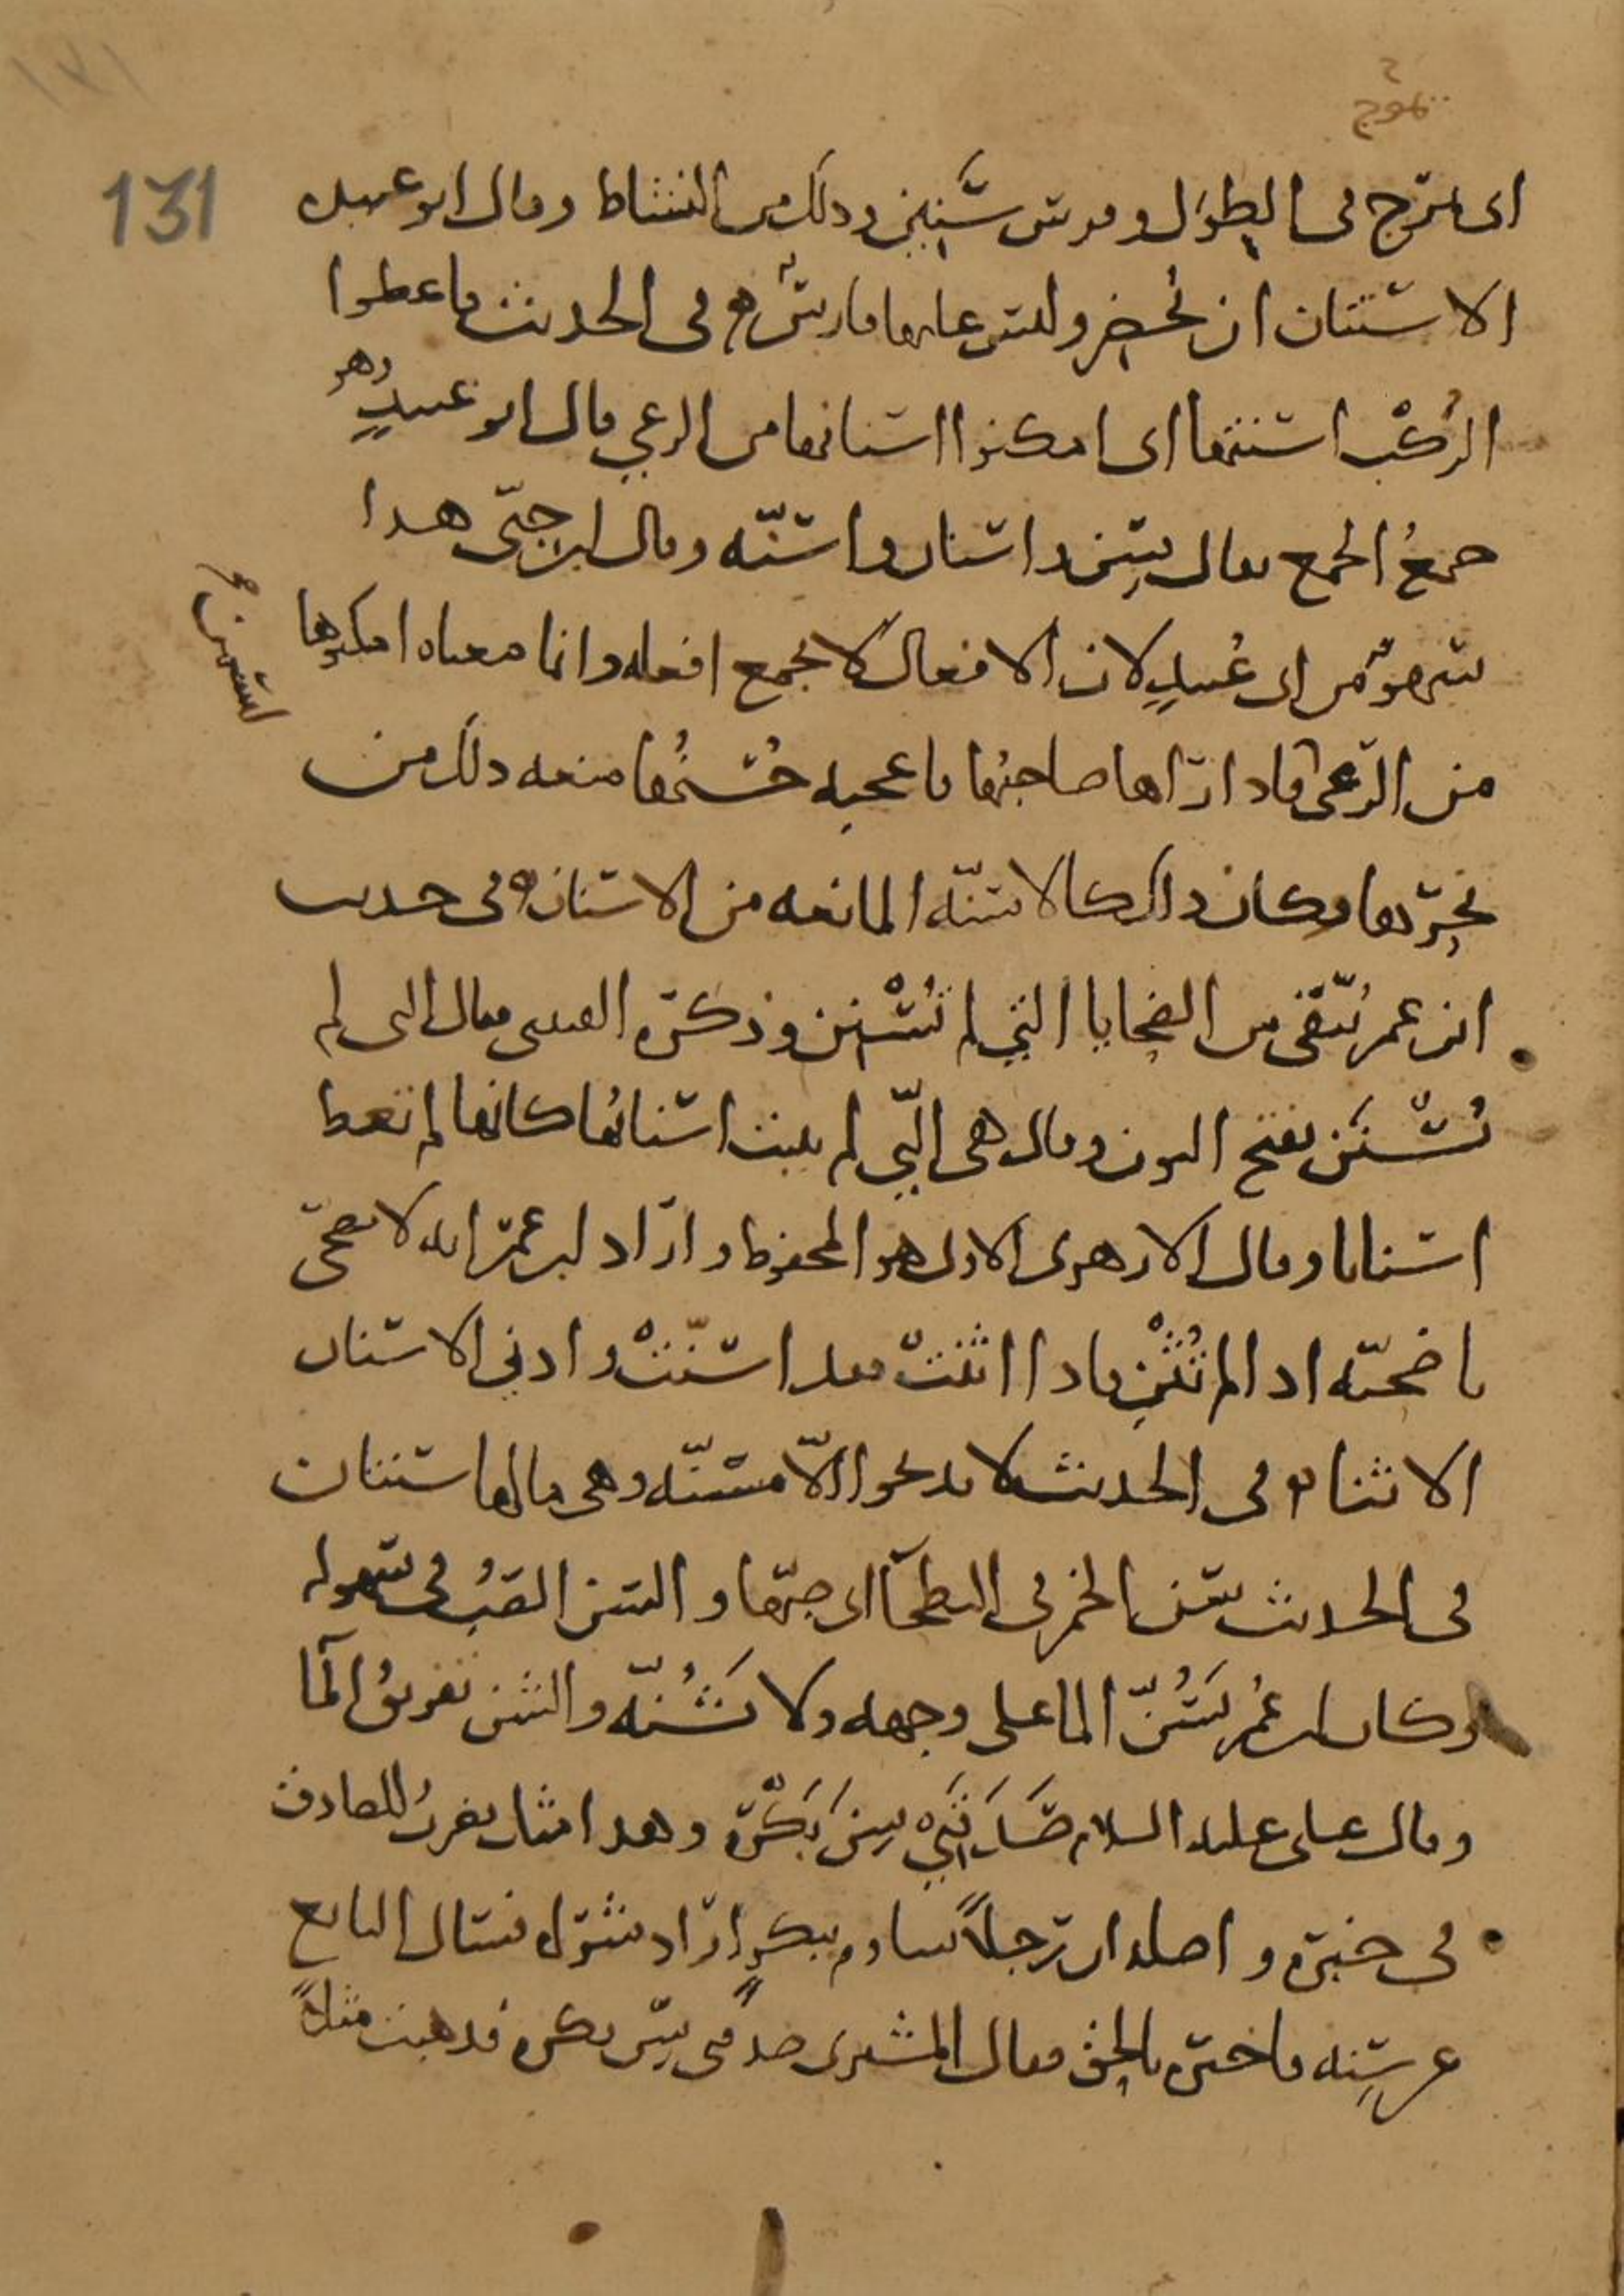 تموج
131
اى تمرج فى الطول وفرس سنين وذلك من النشاط وقال ابو عبيده
الاستنان ان يحضر وليس عليها فارس فى الحديث فاعطوا
الركب اسنتها اى امكنوا اسنانها من الرعي قال ابو عبيد وهو
جمع الجمع يقال سن واسنان واسنه وقال ابن جنى هذا
سهو من ابى عبيد لان الافعال لا يجمع افعله وانما معناه امكنوها
من الرعى فاذا رآها صاحبها فاعجبه حسنها منعه ذلك من
نحرها وكان ذلك كالاسنه المانعه من الاستنان فى حديث
ابن عمر يتقى من الضحايا التي لم تسنن وذكره القتيبى فقال التى لم
تسنن بفتح النون وقال هى التي لم ينبت اسنانها كانها لم تعط
اسنانا وقال الازهرى الاول هو المحفوظ واراد ابن عمر انه لا يضحى
باضحيه اذا لم تثن فاذا اثنت فقد اسنت وادني الاسنان
الاثنا فى الحديث لا تذبحوا الا مسنه وهى ما لها سنتان
فى الحديث سن الخمر فى البطحا اى صبها والسن الصب فى سهوله
وكان ابن عمر يسن الما على وجهه ولا يشنه والشن تفريق الما
وقال على عليه السلام صدقني سن بكره وهذا مثل يضرب للصادق
فى خبره واصله ان رجلا ساوم ببكر اراد شراه فسال البايع
عن سنه فاخبره بالحق فقال المشترى صدقنى سن بكره فذهبت مثلا